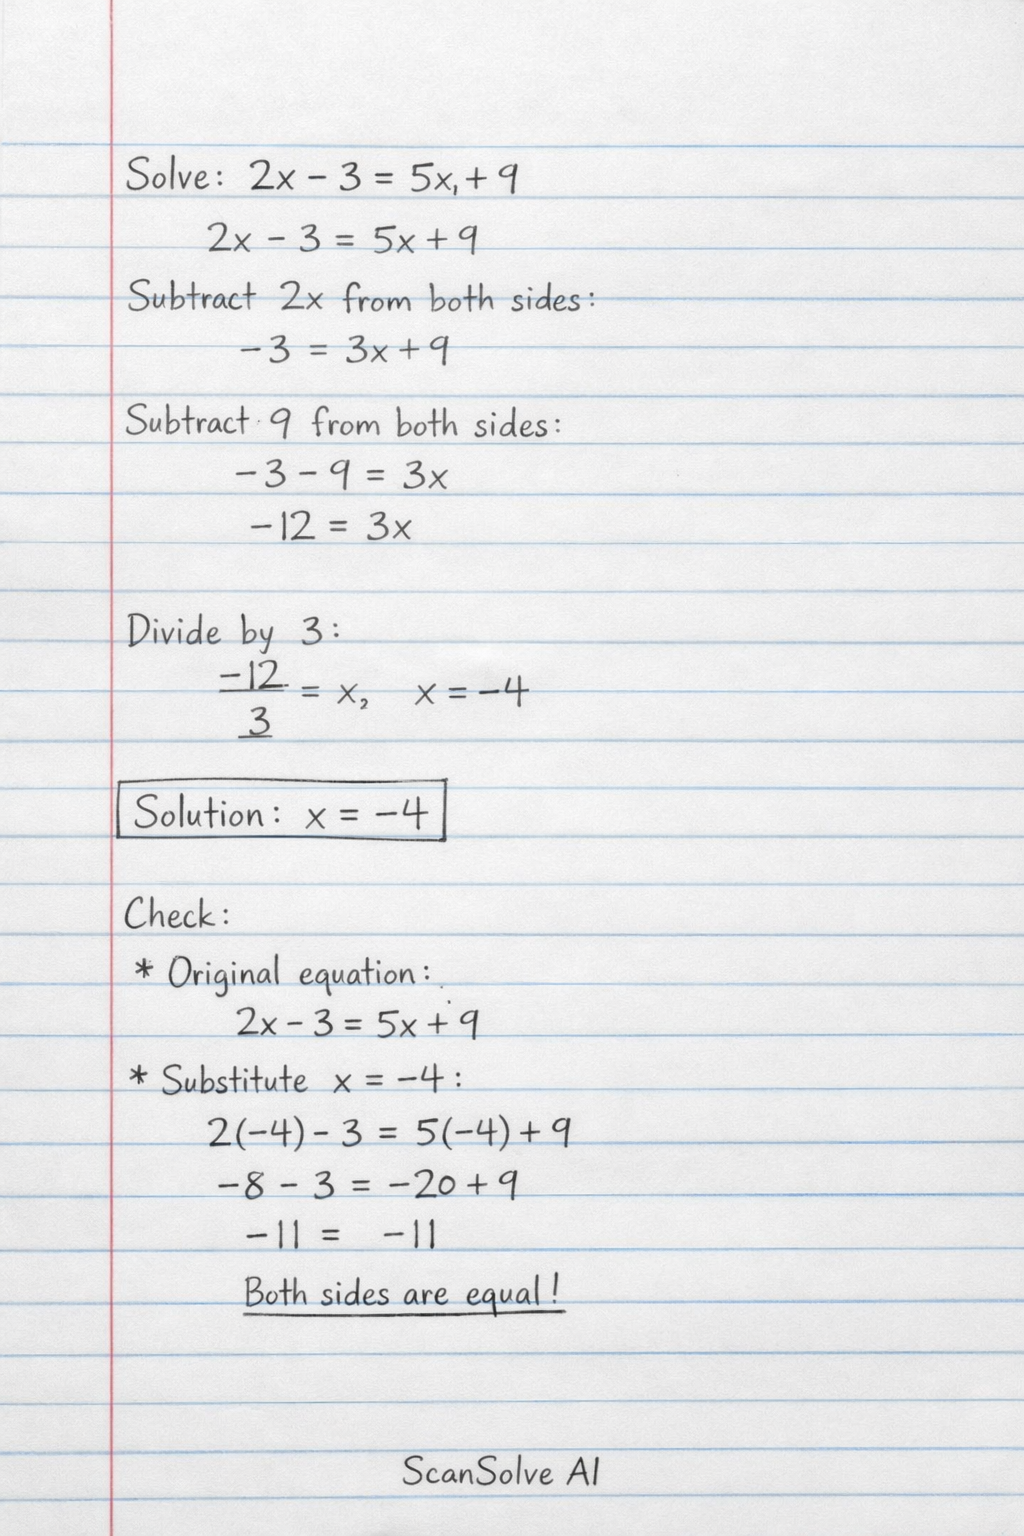 Solve: 2x - 3 = 5x, + 9
2x - 3 = 5x + 9
Subtract 2x from both sides:
-3 = 3x + 9
Subtract 9 from both sides:
-3 - 9 = 3x
-12 = 3x
Divide by 3:
-12/3 = x, x = -4
Solution: x = -4
Check:
* Original equation:
2x - 3 = 5x + 9
* Substitute x = -4:
2(-4) - 3 = 5(-4) + 9
-8 - 3 = -20 + 9
-11 = -11
Both sides are equal!
ScanSolve AI